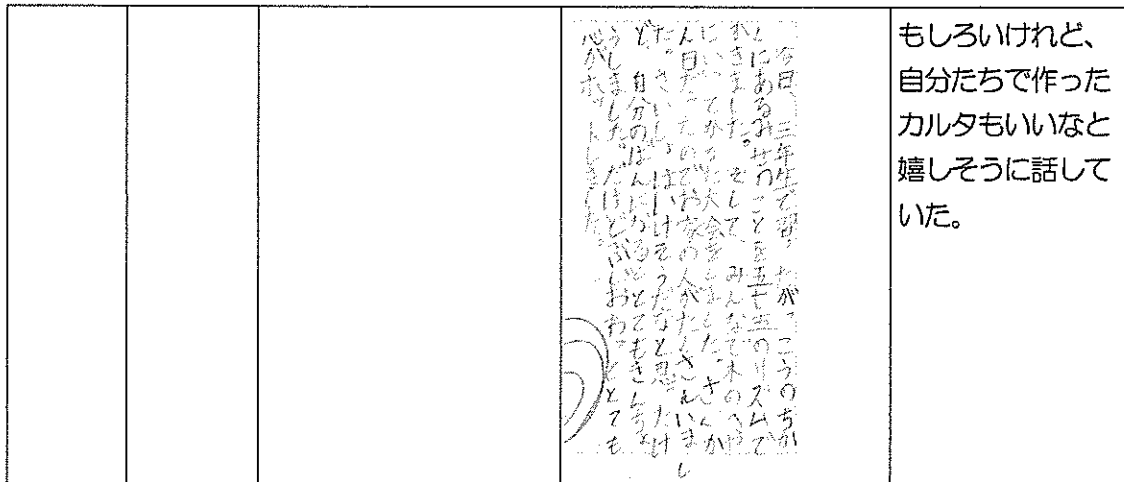 今日、三年生で習ったが、こうのちか
くにあるみせのことを五七五のリズムで
かきました。そして、みんなで木のへや
にいってかるた大会をしました。さんか
ん日だったのでお家の人がたくさんいまし
た。さいしょはいけそうだなと思ったけ
ど、自分のばんになるととてもきんちょ
うしました。だけどぶじおわってとても
心がホットしました。
もしろいけれど、
自分たちで作った
カルタもいいなと
嬉しそうに話して
いた。